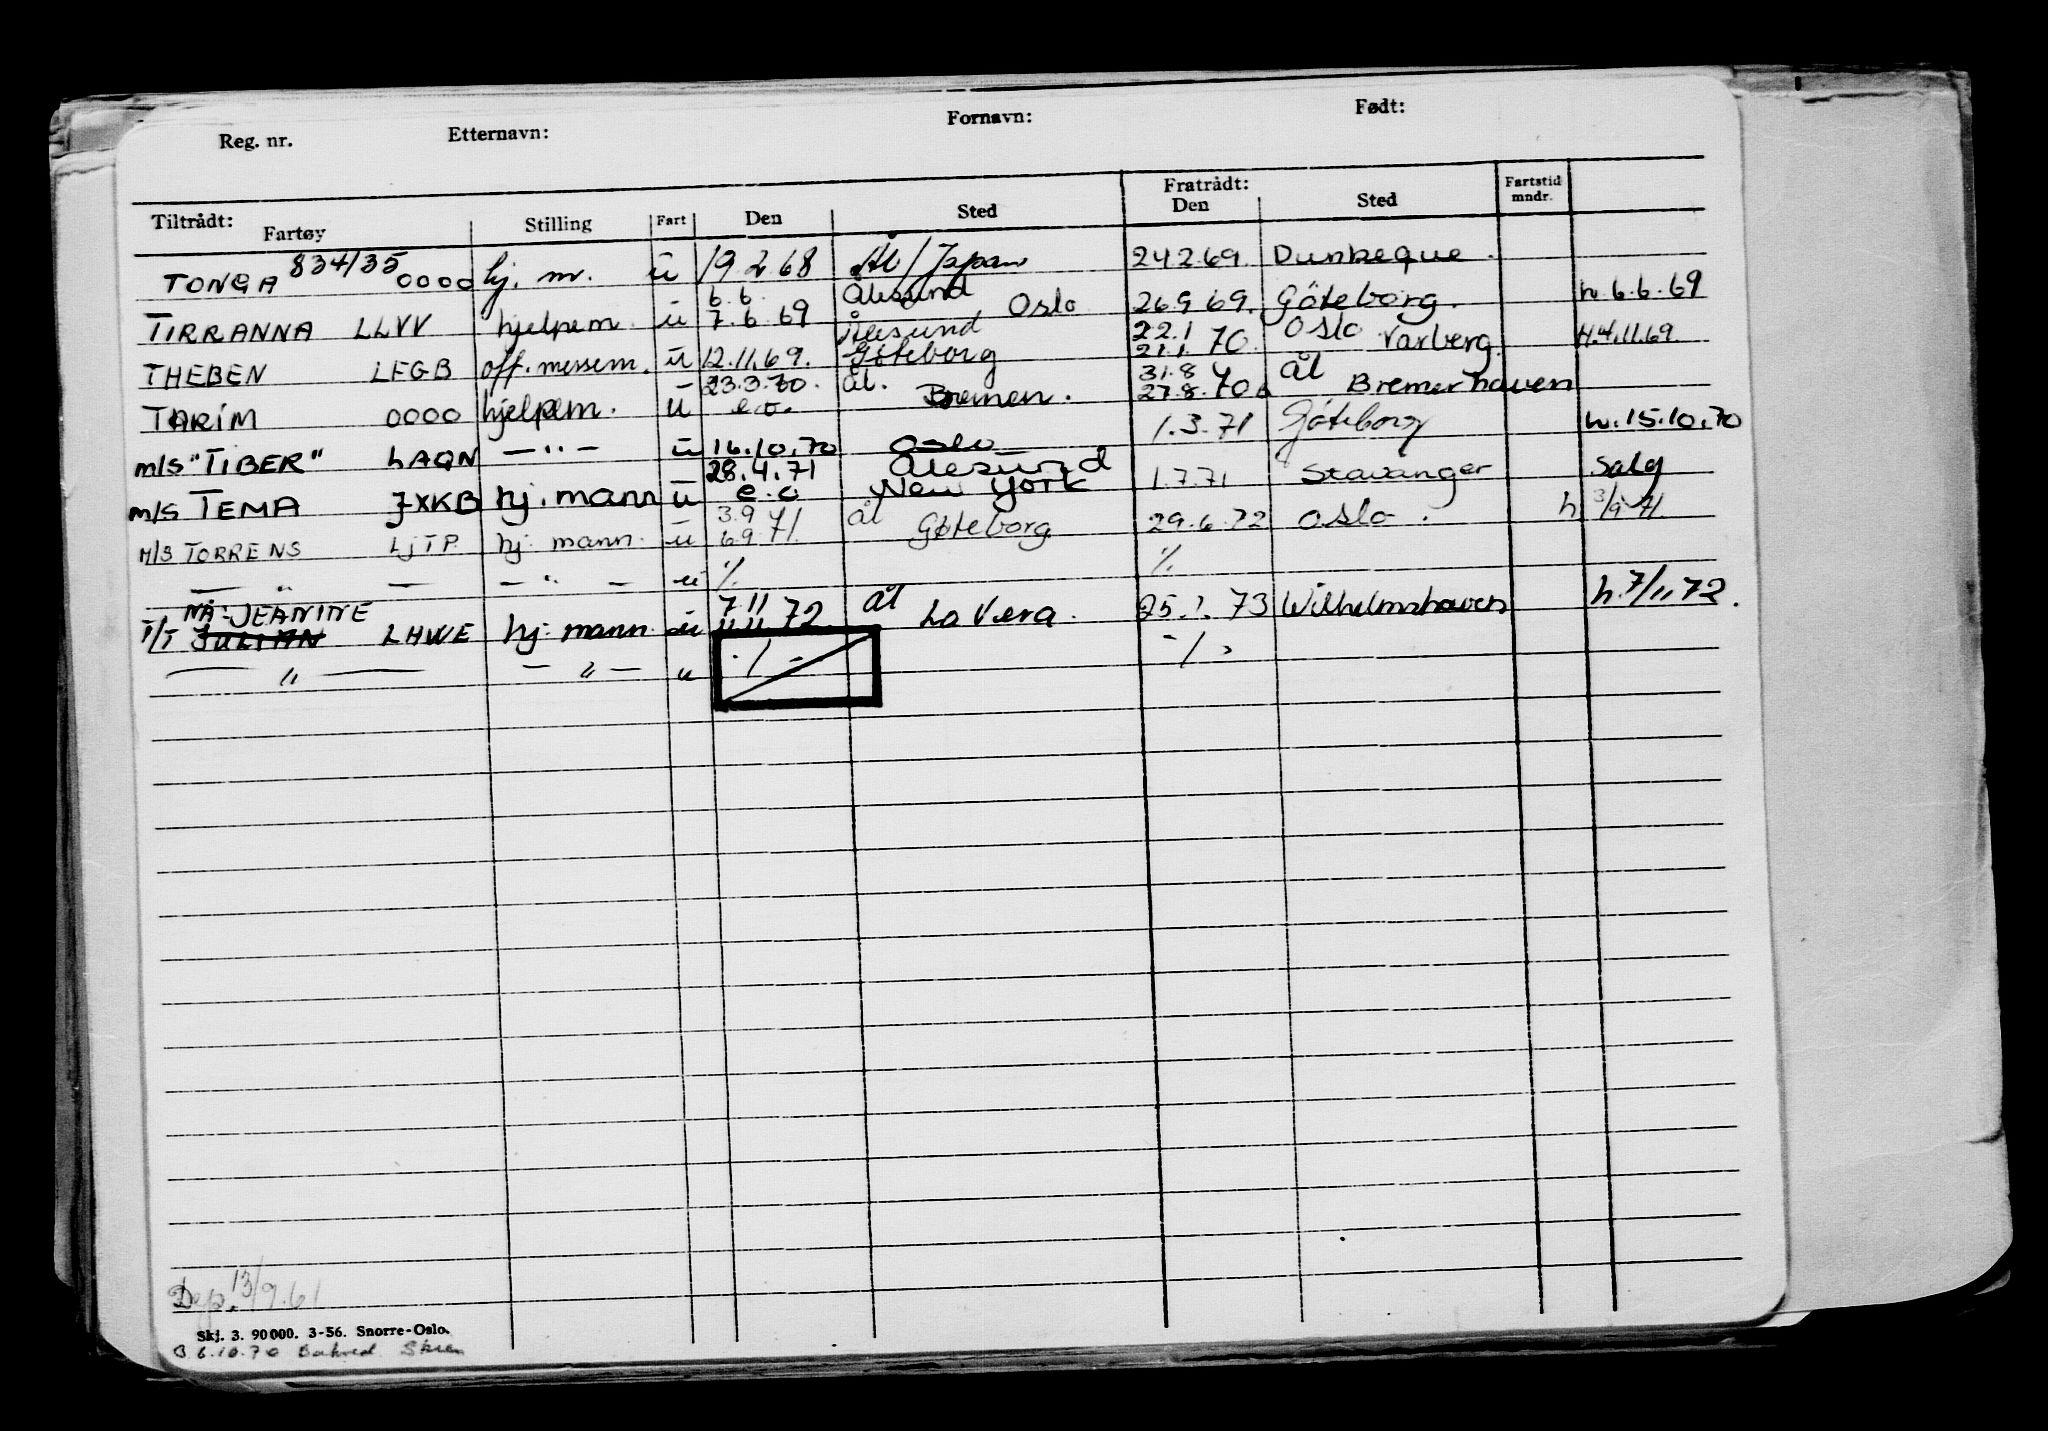 Reg. nr. Etternavn: Fornavn: Født:
Tiltrådt: Fartøy Stilling Fart Den Sted Fratrådt: Den Sted Fartstid mndr.
TONGA 834/35 0000 hj. m. u 19.2.68 Ål/Japan 24.2.69. Dunkeque.
6.6. Ålesund
TIRRANNA LLVV hjelpem. u 7.6.69 Oslo 26.9.69. Göteborg. h. 6.6.69
Ålesund 22.1 Oslo
THEBEN LFGB off. messem. u 12.11.69. Göteborg 21.1.70. Varberg. H.4.11.69
23.3.70. ål. 31.8 ål
TARIM 0000 hjelpem. u e.o. Bremen. 27.8.70 Bremerhaven
m/s "TIBER" LAQN — " — u 16.10.70 Oslo 1.3.71 Göteborg h. 15.10.70
28.4.71 Ålesund
m/s TEMA JXKB hj. mann u e.o New York 1.7.71 Stavanger Salg
3.9 ål
M/S TORRENS LJTP. hj. mann. u 6.9.71. Gøteborg 29.6.72 Oslo. h 3/9-71.
— " — — " — u ·/. ·/.
NÅ: JEANINE 7.11 ål
T/T JULIAN LHWE hj. mann u 11.11.72 La Vera. 25.1.73 Wilhelmshaven h. 7/11 72.
— " — — " — u ·/- -/-
Dep. 13/9.61
Skj. 3. 90000. 3-56. Snorre-Oslo.
6.10.70 Skien